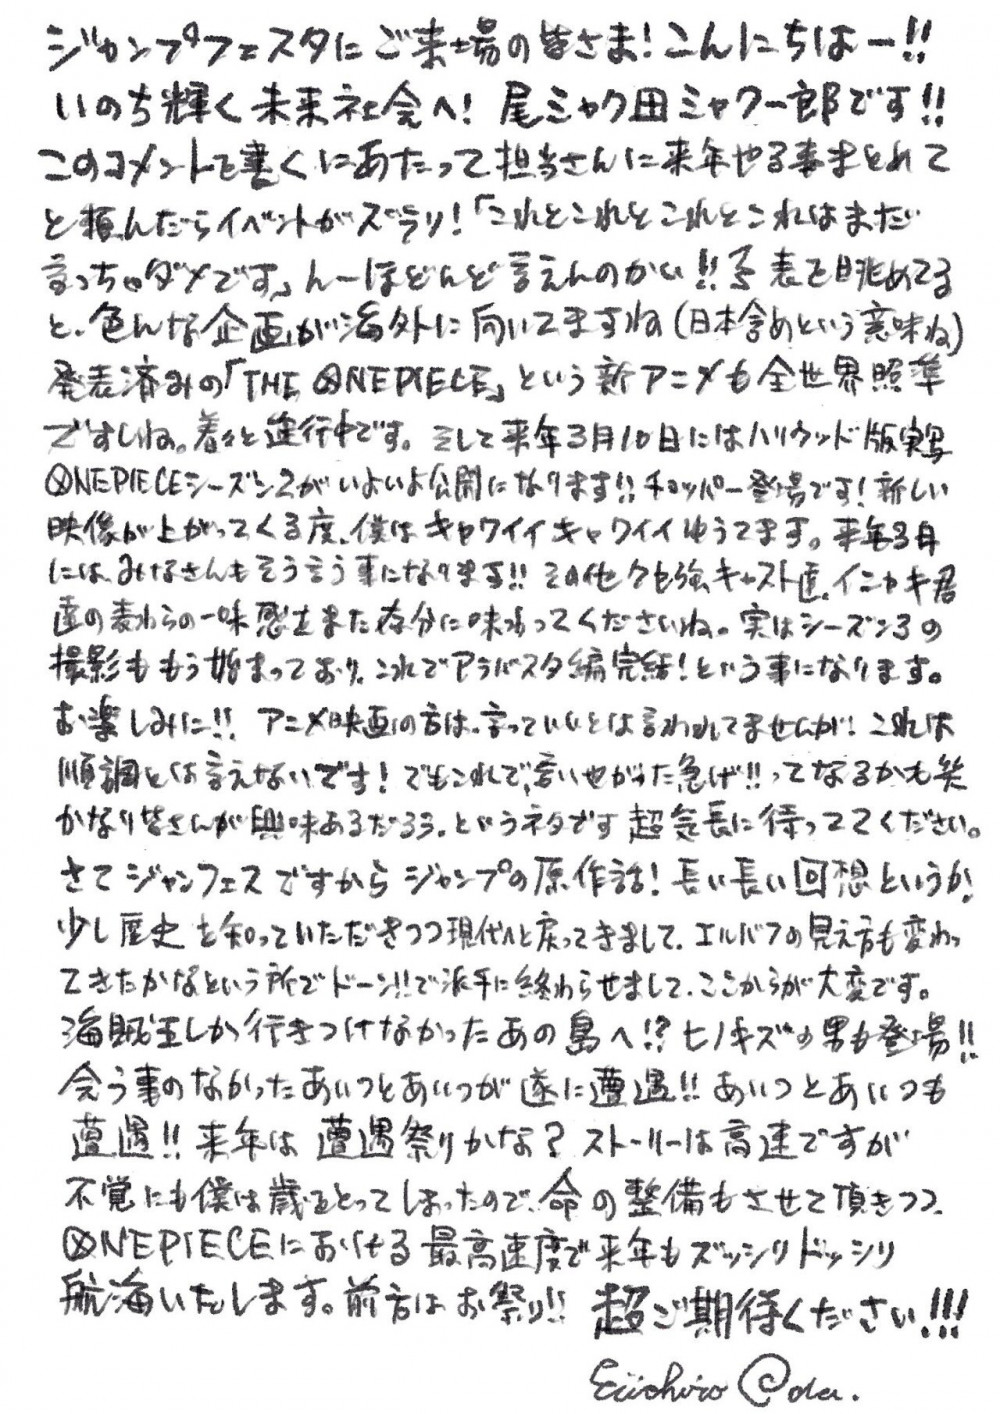 ジャンプフェスタにご来場の皆さま！こんにちはー！！
いのち輝く未来社会へ！尾ミャク田ミャク一郎です！！
このコメントを書くにあたって担当さんに来年やる事まとめて
と頼んだらイベントがズラリ！「これとこれとこれとこれはまだ
言っちゃダメです」んーほどんど言えんのかい！！予表を眺めてる
と、色んな企画が海外に向いてますね（日本含めという意味ね）
発表済みの「THE ONE PIECE」という新アニメも全世界照準
ですしね。着々と進行中です。そして来年3月10日にはハリウッド版実写
ONE PIECEシーズン2がいよいよ公開になります！！チョッパー登場です！新しい
映像が上がってくる度、僕はキャワイイキャワイイゆうてます。来年3月
には、みなさんもそう言う事になります！！その他クセ強キャスト達、イニャキ君
達の麦わらの一味感をまた存分に味わってくださいね。実はシーズン3の
撮影ももう始まっており、これでアラバスタ編完結！という事になります。
お楽しみに！！アニメ映画の方は、言っていいとは言われてませんが！これは
順調とは言えないです！でもこれで、言いやがった急げ！！ってなるかも笑
かなり皆さんが興味あるだろう、というネタです超気長に待っててください。
さてジャンフェスですからジャンプの原作話！長い長い回想というか、
少し歴史を知っていただきつつ現代へと戻ってきまして、エルバフの見え方も変わっ
てきたかなという所でドーン！！で派手に終わらせまして、ここからが大変です。
海賊王しか行きつけなかったあの島へ！？ヒノキズの男も登場！！
会う事のなかったあいつとあいつが遂に遭遇！！あいつとあいつも
遭遇！！来年は遭遇祭りかな？ストーリーは高速ですが
不覚にも僕は歳をとってしまったので、命の整備もさせて頂きつつ、
ONE PIECEにおける最高速度で来年もズッシリドッシリ
航海いたします。前方はお祭り！！超ご期待ください！！！
Eiichiro Oda.